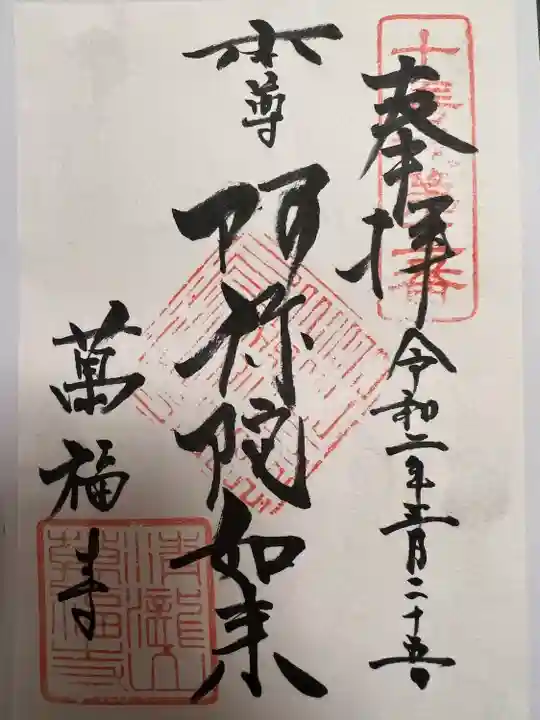 奉拝
令和二年三月二十五日
本尊
阿弥陀如来
萬福寺